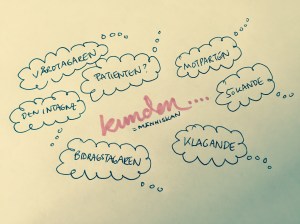 VÅRDTAGAREN
PATIENTEN?
MOTPARTEN
SÖKANDE
DEN INTAGNA
kunden....
= MÄNNISKAN
BIDRAGSTAGAREN
KLAGANDE